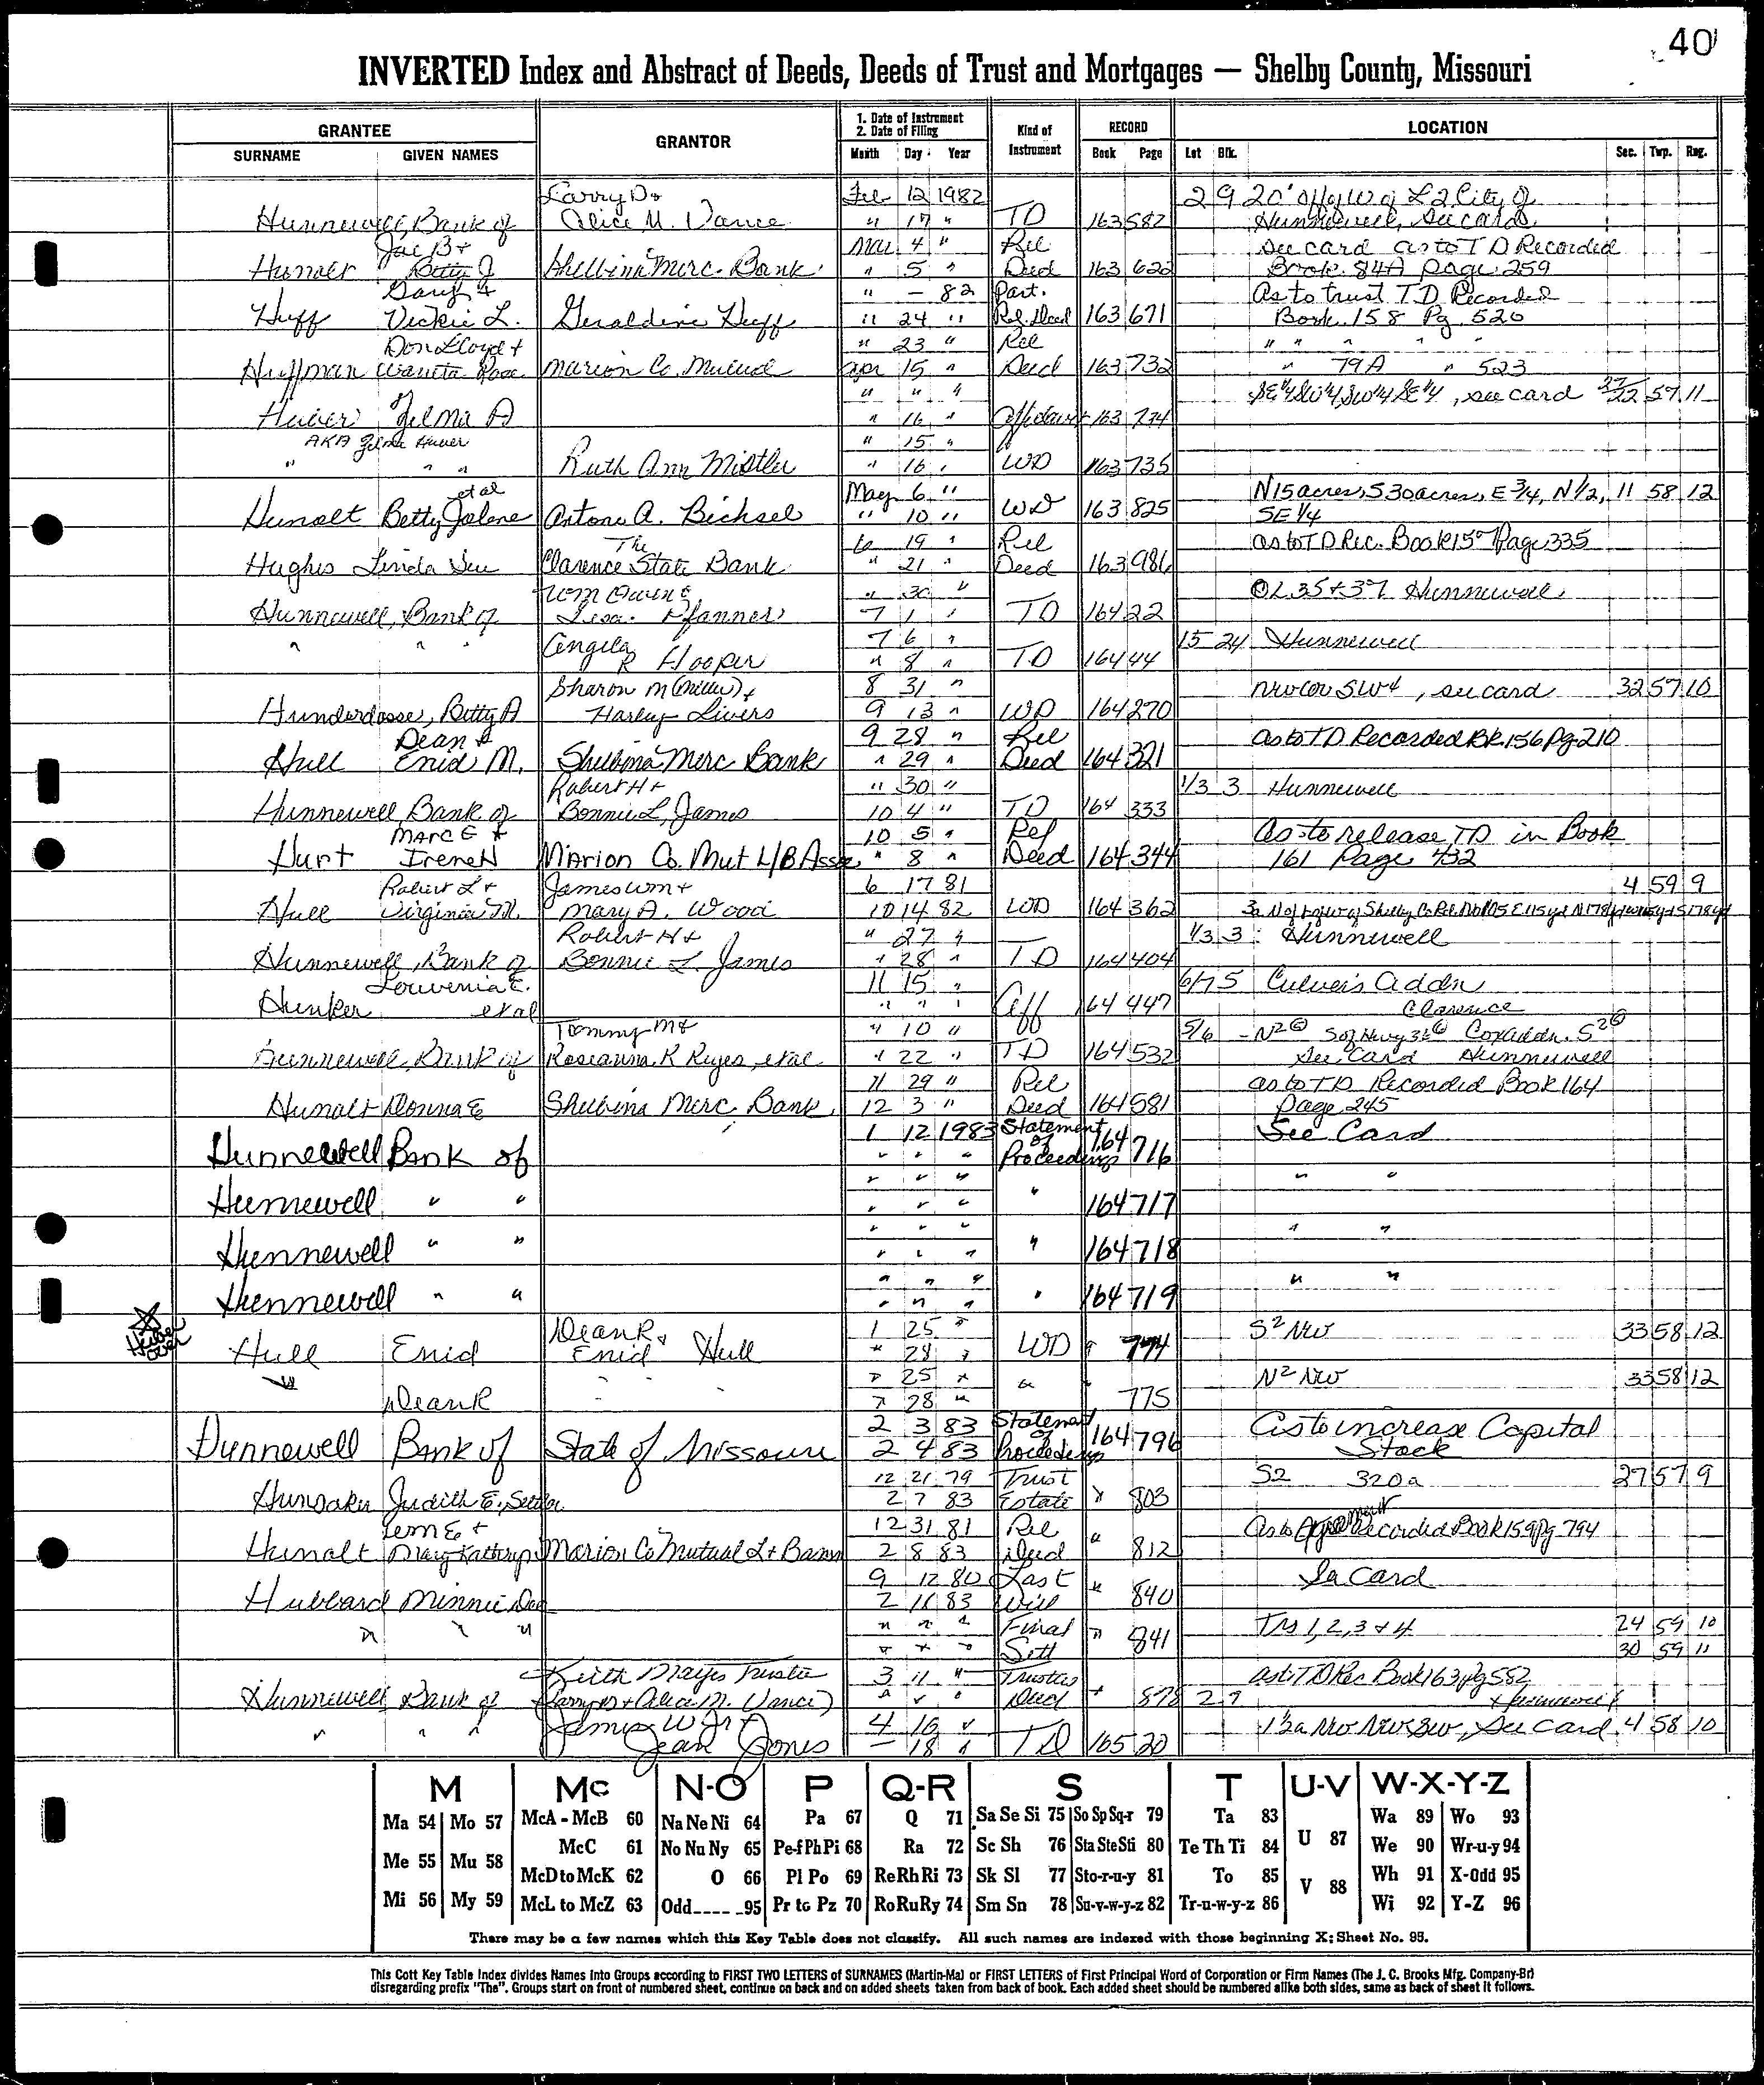 40
INVERTED Index and Abstract of Deeds, Deeds of Trust and Mortgages — Shelby County, Missouri
GRANTEE GRANTOR 1. Date of Instrument 2. Date of Filing Kind of Instrument RECORD LOCATION
SURNAME GIVEN NAMES Month Day Year Book Page Lot Blk. Sec. Twp. Rng.
Larry D + Feb 12 1982 2 9 20' off of W of L2 City of
Hunnewell, Bank of Alice M. Vance " 17 " TD 163 582 Hunnewell, see card
Joe B + Mar 4 " Rel See card as to TD Recorded
Hunolt Betty J Shelbina Merc. Bank " 5 " Deed 163 622 Book 84A page 259
" — 82 Part. As to trust TD Recorded
Huff Vickie L. Geraldine Huff " 24 " Rel Deed 163 671 Book 158 Pg 520
Don Lloyd + " 23 " Rel " " " " "
Huffman Waneta Rose Marion Co. Mutual Apr 15 " Deed 163 732 " 79A " 523
" " " SE¼ SW¼, SW¼ SE¼, see card 27/22 57 11
Huber Zelma A " 16 " Affidavit 163 734
AKA Zelma Huber " 15 "
" " " Ruth Ann Mistler " 16 " WD 163 735
et al May 6 " N 15 acres, S 30 acres, E ¾, N ½, 11 58 12
Hunolt Betty Jolene Antone A. Bichsel " 10 " WD 163 825 SE ¼
The 6 19 " Rel as to TD Rec. Book 157 Page 335
Hughes Linda Sue Clarence State Bank " 21 " Deed 163 986
Wm Owen & " 30 " OL 35 + 37 Hunnewell
Hunnewell, Bank of Lisa Pfanner 7 1 " TD 164 22
Angela 7 6 " 15 24 Hunnewell
" " " R Hooper " 8 " TD 164 44
Sharon M (Miller) + 8 31 " NW cor SW4, see card 32 57 10
Hunderdosse, Betty A Harley Livers 9 13 " WD 164 270
Dean & 9 28 " Rel as to TD Recorded Bk. 156 Pg 210
Hull Enid M. Shelbina Merc Bank " 29 " Deed 164 321
Robert H + " 30 " 1/3 3 Hunnewell
Hunnewell, Bank of Bonnie L. James 10 4 " TD 164 333
MARC E + 10 5 " Rel As to release TD in Book
Hurt Irene H Marion Co. Mut L/B Assn " 8 " Deed 164 344 161 Page 432
Robert L + James Wm + 6 17 81 4 59 9
Hull Virginia M. Mary A. Wood 10 14 82 WD 164 362
Robert H + " 27 " 1/3 3 Hunnewell
Hunnewell, Bank of Bonnie L. James " 28 " TD 164 404
Louvenia E. 11 15 " 6/7 5 Culver's Addn
Hunker et al " " " Aff 164 447 Clarence
Tommy M + " 10 " 5/6 - N2 S of Hwy 36 Cox Addn. S2
Hunnewell, Bank of Roseanna K Keyes, et al " 22 " TD 164 532 See Card Hunnewell
11 29 " Rel as to TD Recorded Book 164
Hunolt Donna E Shelbina Merc. Bank 12 3 " Deed 164 581 page 245
1 12 1983 Statement of See Card
Hunnewell Bank of " " " Proceedings 164 716
" " " " "
Hunnewell " " " " " " 164 717
" " " " "
Hunnewell " " " " " " 164 718
" " " " "
Hunnewell " " " " " " 164 719
Huber over
Dean R + 1 25 " S2 NW 33 58 12
Hull Enid Enid Hull " 28 " WD " 774
" " 25 " " " N2 NW 33 58 12
Dean R " " " " 28 " 775
2 3 83 Statement of As to increase Capital
Hunnewell Bank of State of Missouri 2 4 83 Proceedings 164 796 Stock
12 21 79 Trust S2 320a 27 57 9
Hunsaker Judith E., Settlor 2 7 83 Estate " 803
Lem E + 12 31 81 Rel As to Agreement Recorded Book 159 Pg 794
Hunolt Mary Kathryn Marion Co Mutual L + B assn 2 8 83 Deed " 812
9 12 80 Last See Card
Hubbard Minnie Dee 2 11 83 Will " 840
" " " " " " Final " Trs 1, 2, 3 & 4 24 59 10
" " " Sett 841 30 59 11
Keith Mayes Trustee 3 11 " Trustee as to TD Rec Book 163 pg 582
Hunnewell, Bank of (Larry D + Alice M. Vance) " " " Deed " 878 2 9 Hunnewell
James W Jr + 4 16 " 1½a NW NW SW, See Card 4 58 10
" " " Jean Jones — 18 " TD 165 20
M Mc N-O P Q-R S T U-V W-X-Y-Z
Ma 54 Mo 57 McA - McB 60 Na Ne Ni 64 Pa 67 Q 71 Sa Se Si 75 So Sp Sq-r 79 Ta 83 U 87 Wa 89 Wo 93
Me 55 Mu 58 McC 61 No Nu Ny 65 Pe-f Ph Pi 68 Ra 72 Sc Sh 76 Sta Ste Sti 80 Te Th Ti 84 V 88 We 90 Wr-u-y 94
McD to McK 62 O 66 Pl Po 69 Re Rh Ri 73 Sk Sl 77 Sto-r-u-y 81 To 85 Wh 91 X-Odd 95
Mi 56 My 59 McL to McZ 63 Odd____ 95 Pr to Pz 70 Ro Ru Ry 74 Sm Sn 78 Su-v-w-y-z 82 Tr-u-w-y-z 86 Wi 92 Y-Z 96
There may be a few names which this Key Table does not classify. All such names are indexed with those beginning X; Sheet No. 95.
This Cott Key Table Index divides Names into Groups according to FIRST TWO LETTERS of SURNAMES (Martin-Ma) or FIRST LETTERS of First Principal Word of Corporation or Firm Names (The J. C. Brooks Mfg. Company-Br)
disregarding prefix "The". Groups start on front of numbered sheet, continue on back and on added sheets taken from back of book. Each added sheet should be numbered alike both sides, same as back of sheet it follows.